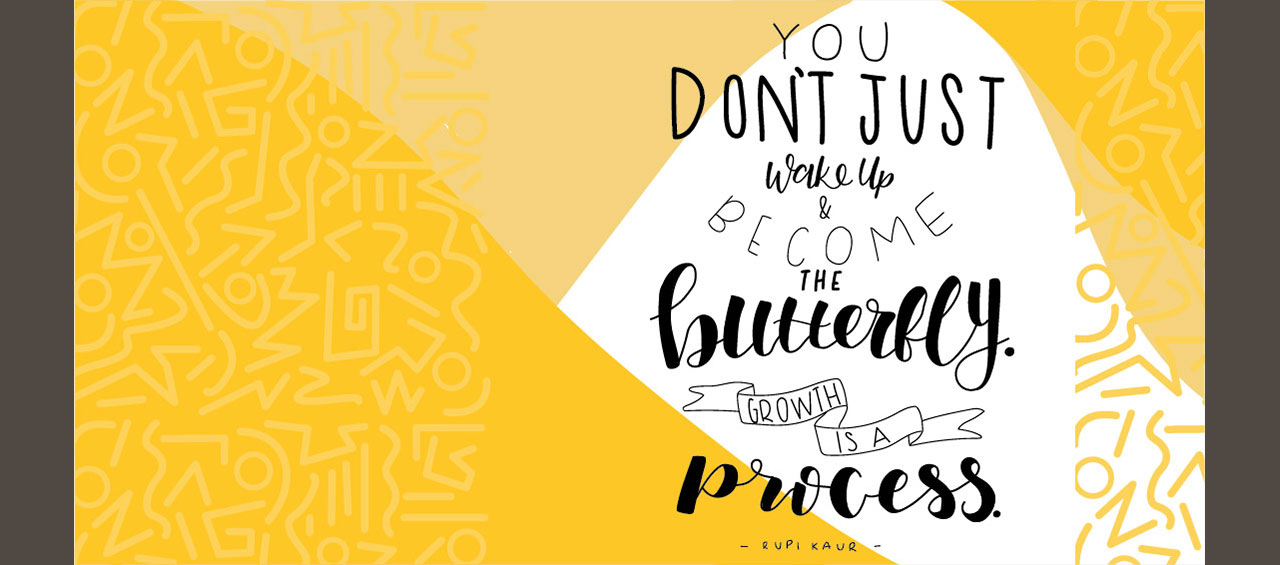 YOU
DON'T JUST
wake up
&
BECOME
THE
butterfly.
GROWTH
IS A
process.
- RUPI KAUR -